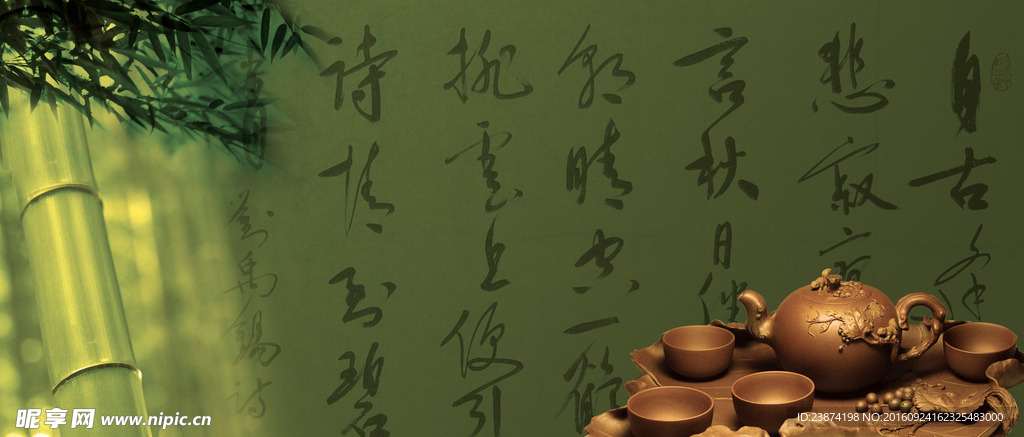 自古
悲寂寥
言秋日
朝晴空一鹤
排云上便引
诗情到碧
刘禹锡诗
昵享网 www.nipic.cn
ID:23874198 NO:20160924162325483000